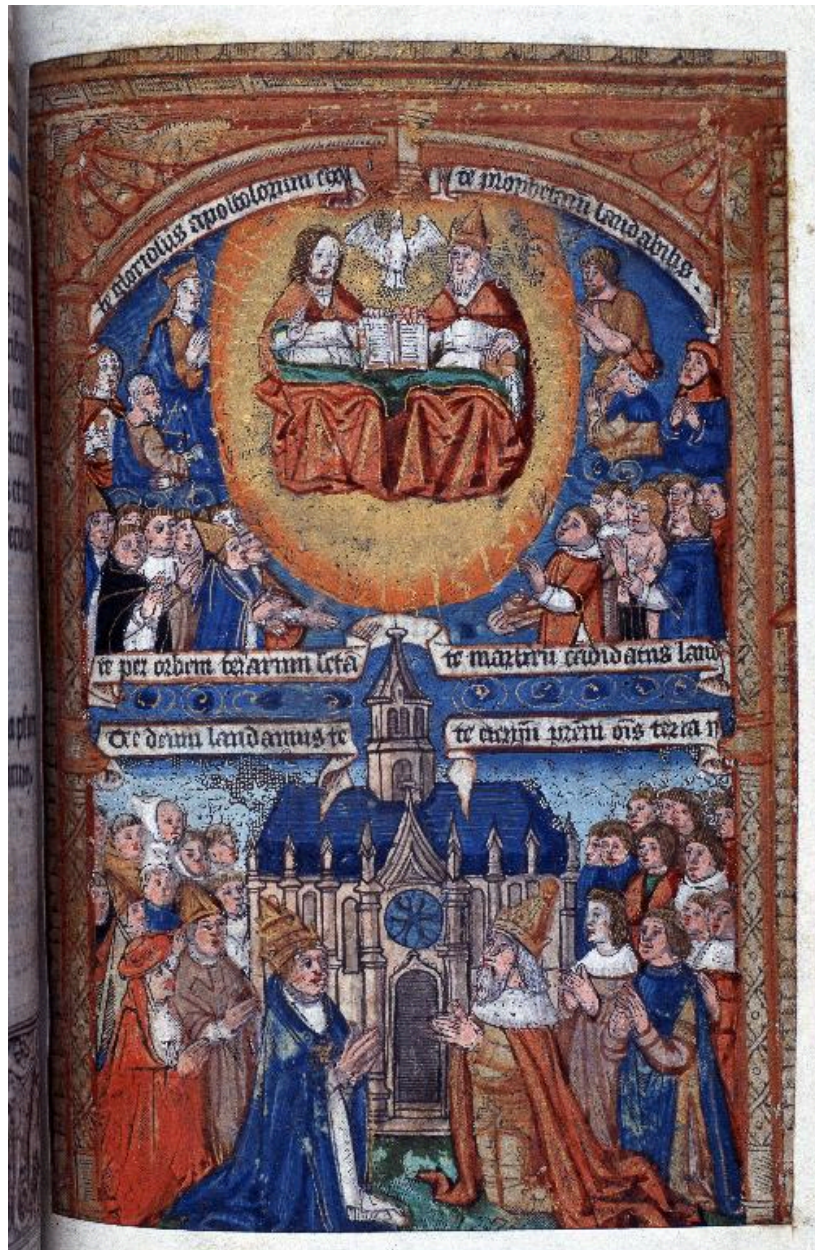 te gloriosus apostolorum cho
te prophetarū laudabilis.
te per orbem terarum scta
te martirū cādidatus laud
Te deum laudamus te
te eternū prēm oīs terra